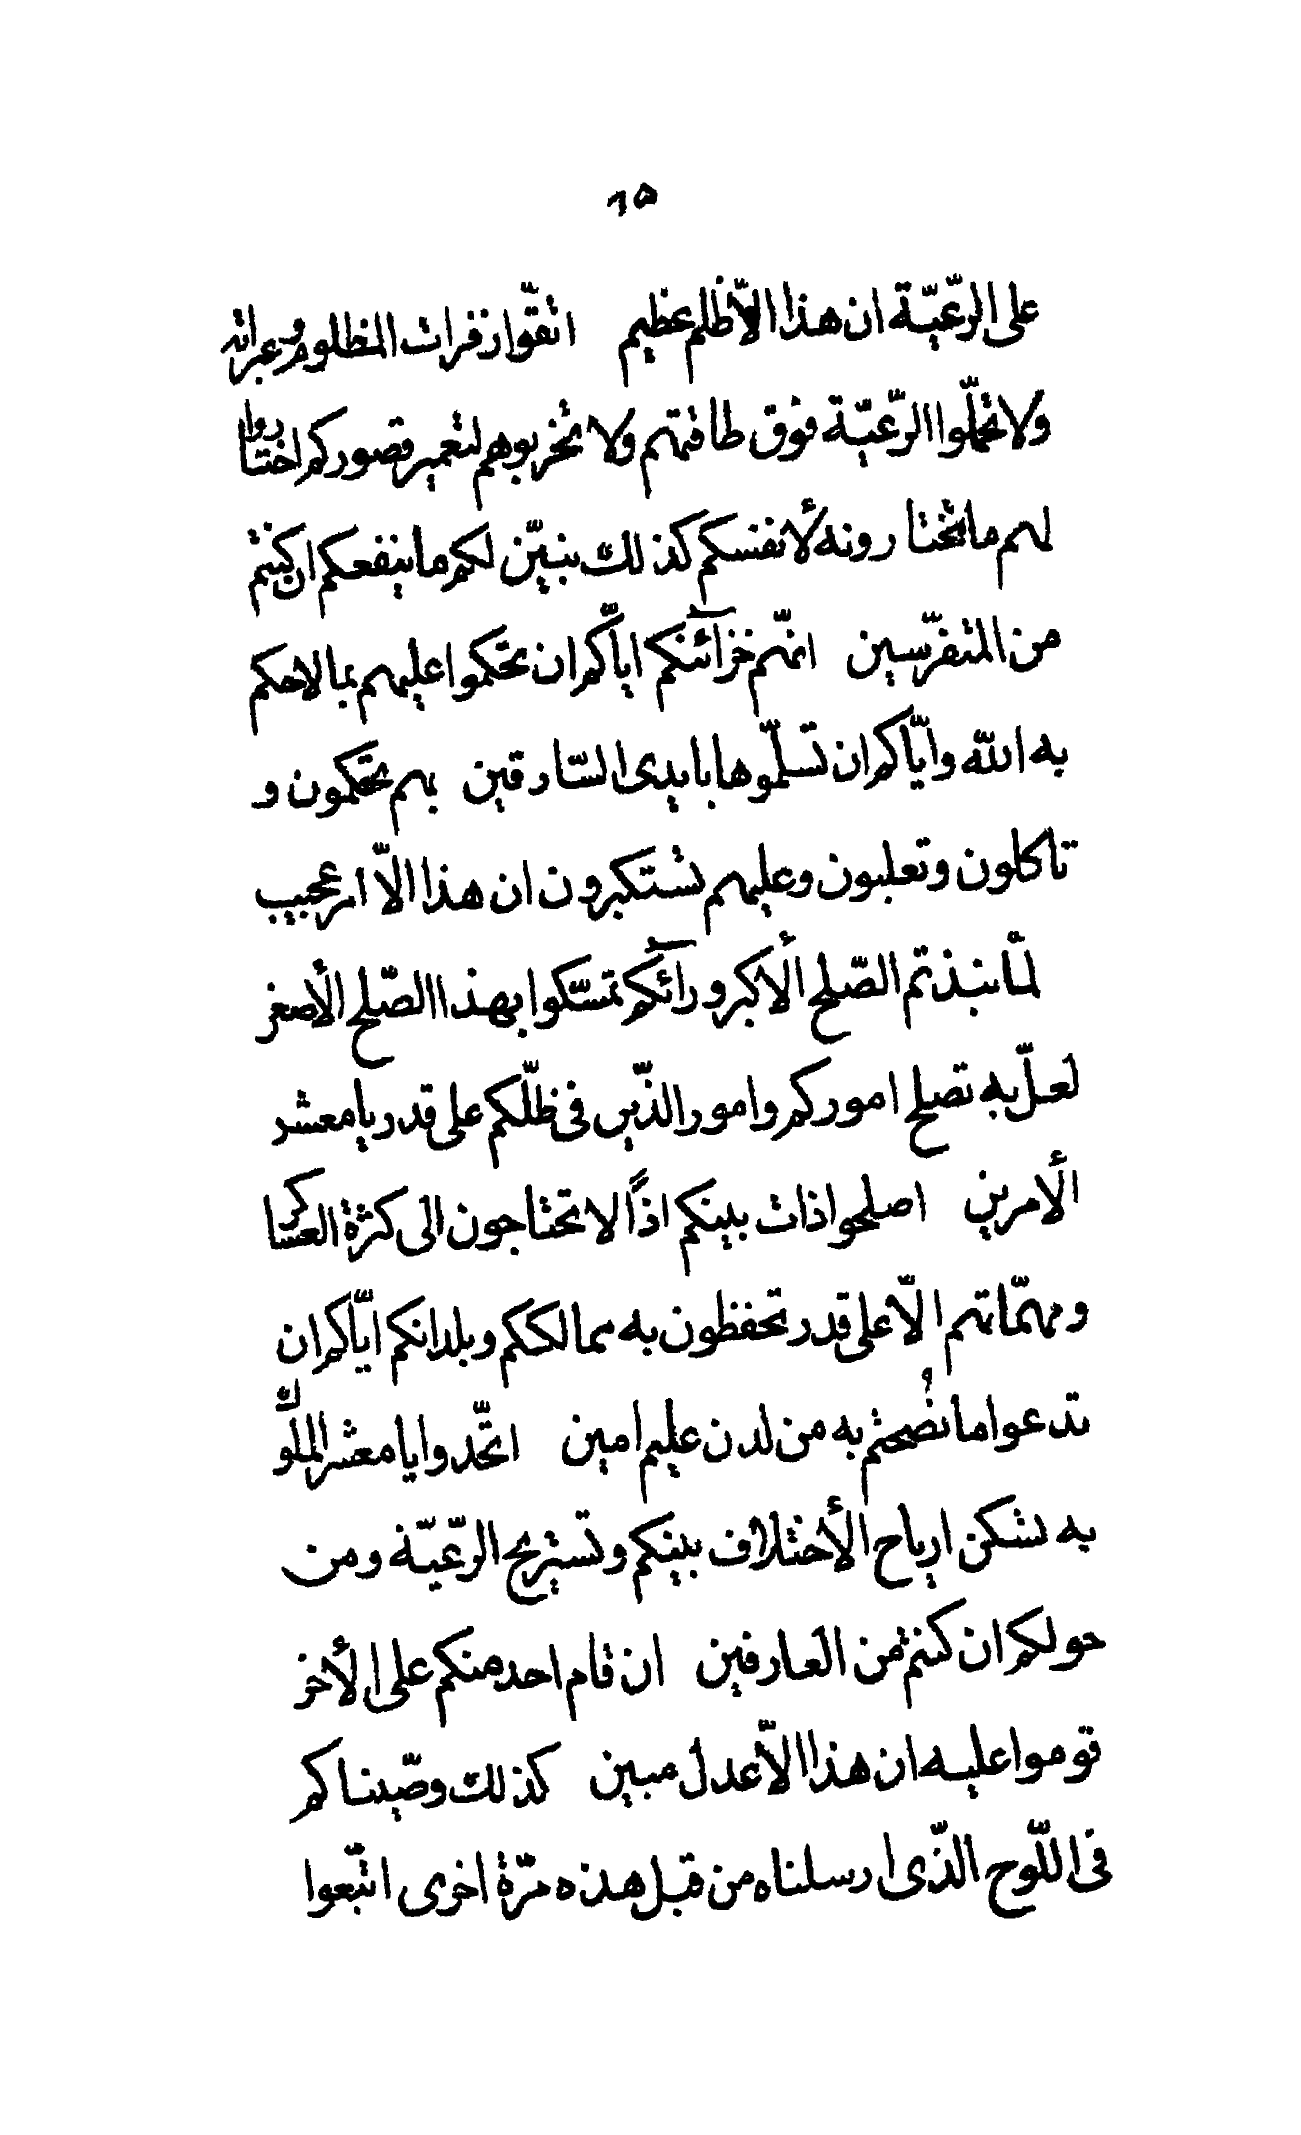 ٦٥
على الرّعيّة ان هذا الّا ظلم عظيم اتّقوا زفرات المظلوم و عبراته
ولا تحمّلوا الرّعيّة فوق طاقتهم ولا تخربوهم لتعمير قصوركم اختاروا
لهم ما تختارونه لأنفسكم كذلك نبيّن لكم ما ينفعكم ان كنتم
من المتفرّسين انّهم خزآئنكم ايّاكم ان تحكموا عليهم بما لا حكم
به الله وايّاكم ان تسلّموها بايدى السّارقين بهم تحكمون و
تاكلون وتغلبون وعليهم تستكبرون ان هذا الّا امر عجيب
لمّا نبذتم الصّلح الأكبر ورآئكم تمسّكوا بهذا الصّلح الأصغر
لعلّ به تصلح اموركم وامور الذّين فى ظلّكم على قدر يا معشر
الأمرين اصلحوا ذات بينكم اذًا لا تحتاجون الى كثرة العساكر
ومهمّاتهم الّا على قدر تحفظون به ممالككم وبلدانكم ايّاكم ان
تدعوا ما نُصحتم به من لدن عليم امين اتّحدوا يا معشر الملوك
به تسكن ارياح الأختلاف بينكم وتستريح الرّعيّة ومن
حولكم ان كنتم من العارفين ان قام احد منكم على الأخر
قوموا عليه ان هذا الّا عدل مبين كذلك وصّيناكم
فى اللّوح الذّى ارسلناه من قبل هذه مرّة اخرى اتّبعوا